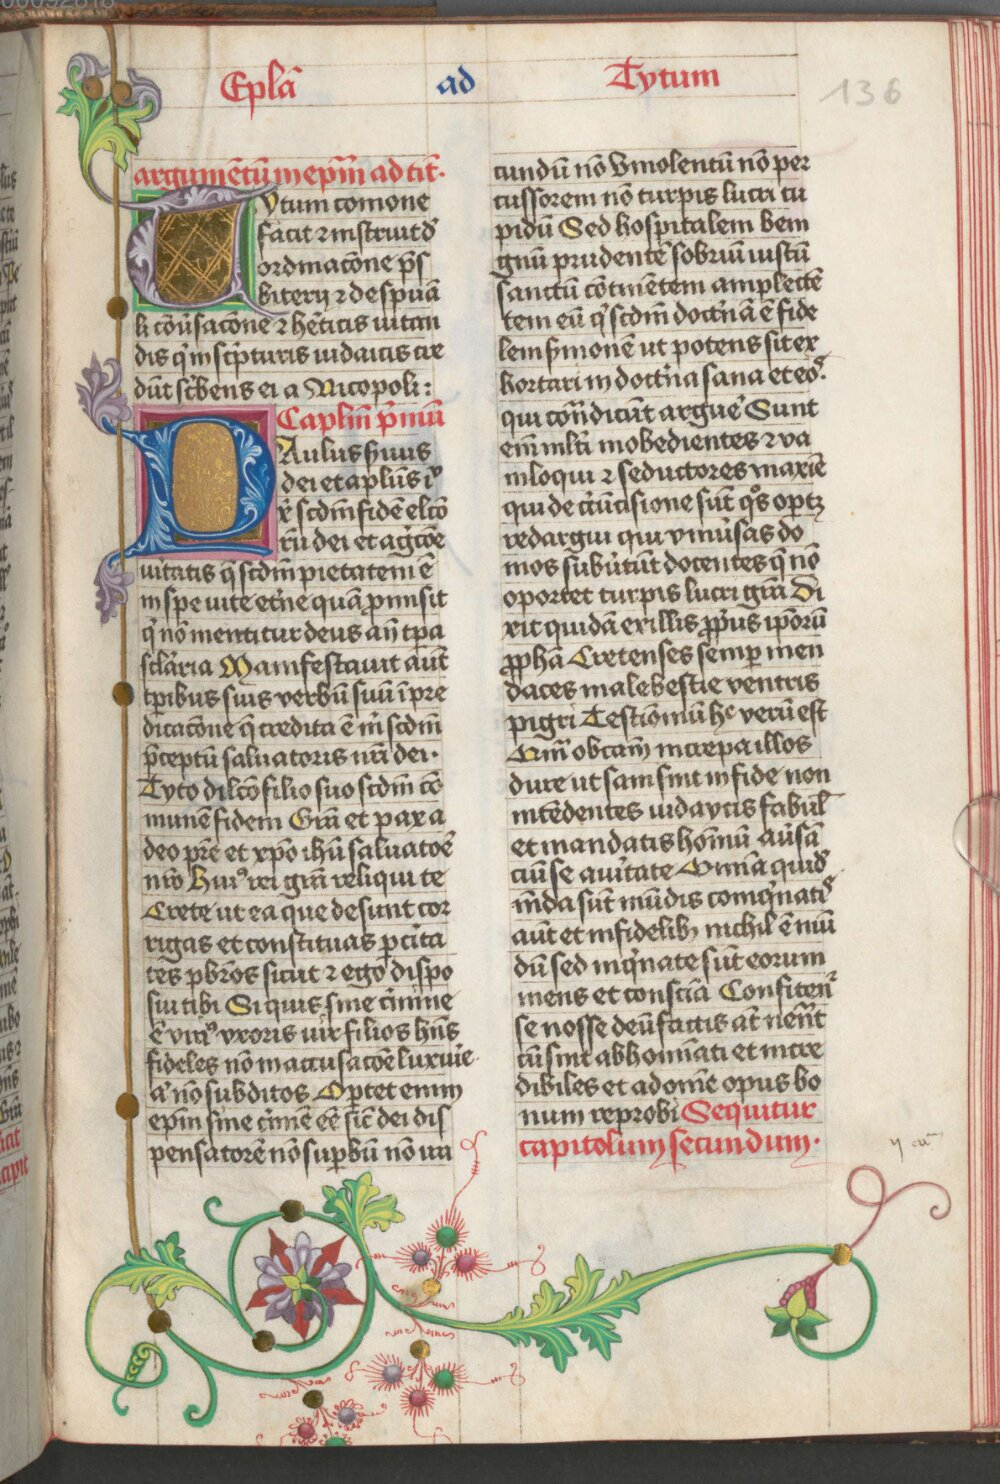 Epl̄a ad Tytum
136
argumētū in ep̄m ad tit̄.
Tytum comone
facit ⁊ instruit d̕
ordinacōne p̄s
biterij ⁊ de sp̄uā
li cōūsacōne ⁊ hēticis uitan
dis q̇ in sc̄pturis iudaicis cre
dūt sc̄bens ei a Nicopoli:
Caplm̄ p̄mū
Paulus s̄uus
dei et apl̄us ih̄u
xp̄i scdm̄ fidē elc̄o
rū dei et aḡcōe
uitatis q̄ scdm̄ pietatem ē
in spe uite et̄ne quā p̄misit
q̇ nō mentitur deus an̄ tp̄a
sclāria Manifestauit aut̄
tp̄ibus suis verbū suū ī pre
dicacōne q̄ credita ē m̄ scdm̄
p̄ceptū saluatoris nr̄i dei.
Tyto dilc̄o filio suo scdm̄ cō
munē fidem Grā et pax a
deo pr̄e et xp̄o ih̄u saluatoē
nr̄o Huiꝰ rei grā reliqui te
Crete ut ea que desunt cor
rigas et constituas p̄ ciīta
tes p̄bros sicut ⁊ ego dispo
sui tibi Si quis sine c̄mine
ē vniꝰ vxoris uir filios hn̄s
fideles nō in accusacōe luxurie
aꝰ nō subditos Oportet enim
ep̄m sine c̄imē eē sic̄ dei dis
pensatorē nō sup̄bū nō ira
cundū nō vinolentū nō per
cussorem nō turpis lucri cu
pidū Sed hospitalem beni
gnū prudentē sobriū iustū
sanctū cōtinētem amplectē
tem eū q̇ scdm̄ doct̄nā ē fide
lem s̄monē ut potens sit ex
hortari in doct̄na sana et eoꝰ
qui cōn̄dicūt arguē Sunt
eni̅ ml̄ti inobedientes ⁊ va
niloqui ⁊ seductores maxīe
qui de c̄ūcisione sūt q̊s oportꝫ
redargui qui vniūsas do
mos subūtūt docentes q̄ nō
oportet turpis lucri grā Di
xit quidā ex illis ꝓp̄ius ip̄orū
ꝓphā Cretenses semꝑ men
daces male bestie ventris
pigri Testiōniū hͨ verū est
Qm̄ ob cām increpa illos
dure ut sani sint in fide non
intēdentes iudaycis fabul̄
et mandatis homīnū aūsā
ciū se a ūitate Omnia quid̕
mūda sūt mūdis coinq̇natiꝰ
aut̄ et infidelibꝫ nichil ē mū
dū sed inq̇nate sūt eorum
mens et conscīa Confitent̉
se nosse deū factis at̄ nen̄t
cū sint abhoīati et incre
dibiles et ad om̄e opus bo
num reprobi Sequitur
capitolum secundum.